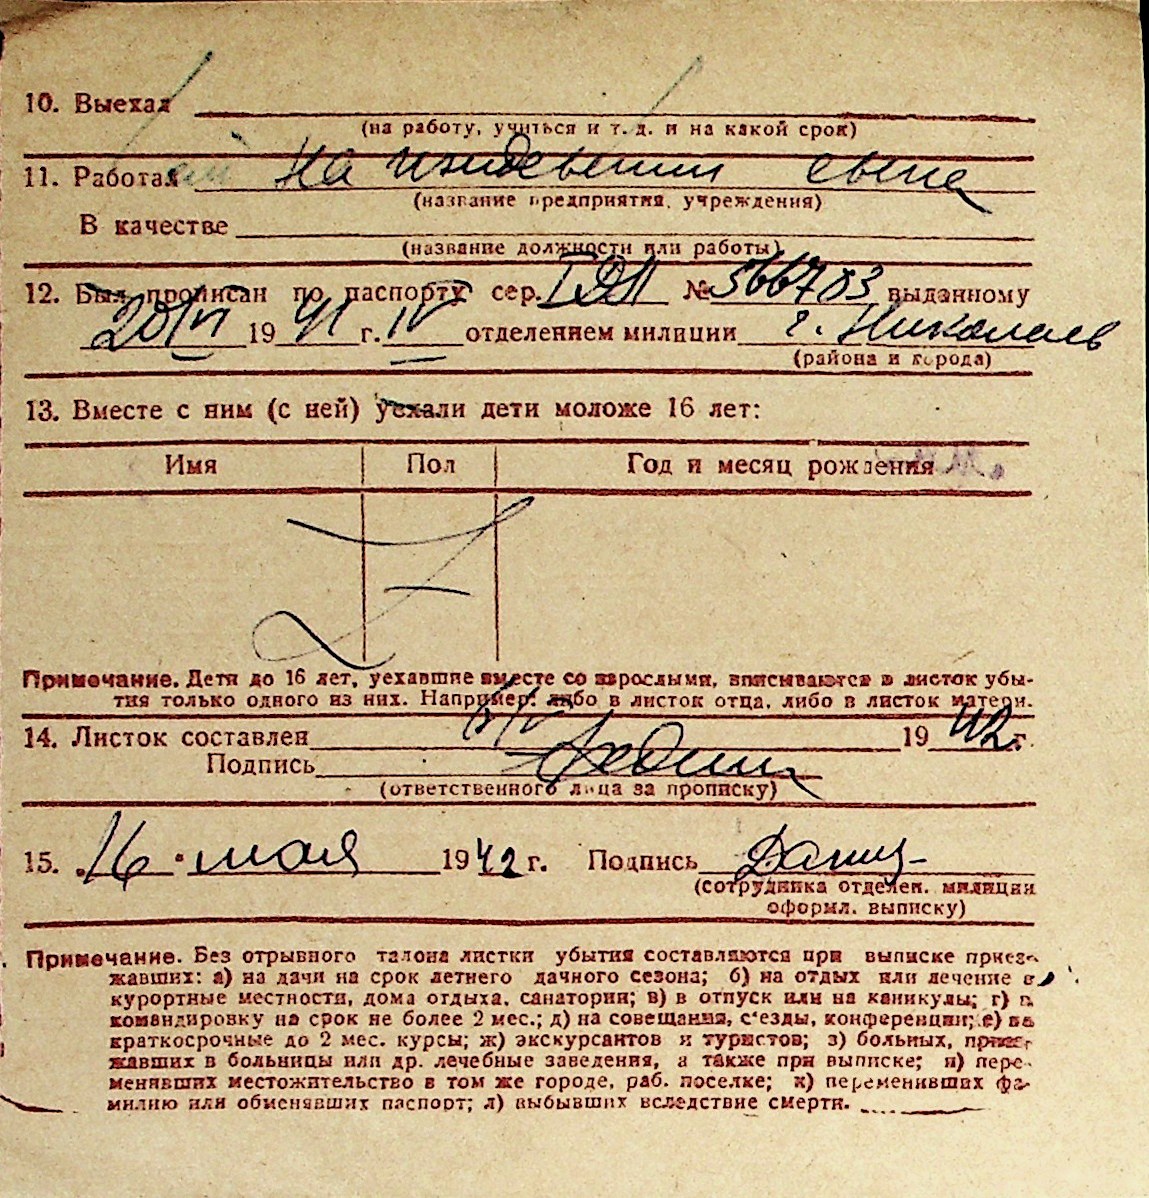 10. Выехал
(на работу, учиться и т. д. и на какой срок)
11. Работал На иждевении сына
(название предприятия, учреждения)
В качестве
(название должности или работы)
12. Был прописан по паспорту сер. № 566783 выданному
20/VI 1941 г. IV отделением милиции г. Николаев
(района и города)
13. Вместе с ним (с ней) уехали дети моложе 16 лет:
Имя Пол Год и месяц рождения
Примечание. Дети до 16 лет, уехавшие вместе со взрослыми, вписываются в листок убы-
тия только одного из них. Например: либо в листок отца, либо в листок матери.
14. Листок составлен 1942 г.
Подпись
(ответственного лица за прописку)
15. 16 " мая 1942 г. Подпись
(сотрудника отделен. милиции
оформл. выписку)
Примечание. Без отрывного талона листки убытия составляются при выписке приез-
жавших: а) на дачи на срок летнего дачного сезона; б) на отдых или лечение в
курортные местности, дома отдыха, санатории; в) в отпуск или на каникулы; г) в
командировку на срок не более 2 мес.; д) на совещания, с'езды, конференции; е) на
краткосрочные до 2 мес. курсы; ж) экскурсантов и туристов; з) больных, приез-
жавших в больницы или др. лечебные заведения, а также при выписке; и) пере-
менявших местожительство в том же городе, раб. поселке; к) переменивших фа-
милию или обменявших паспорт; л) выбывших вследствие смерти.